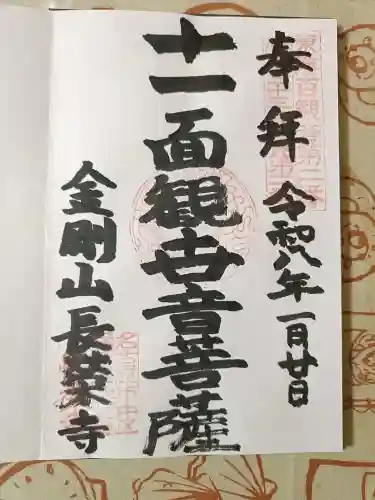 奉拝
令和八年一月廿日
十一面観世音菩薩
金剛山長榮寺